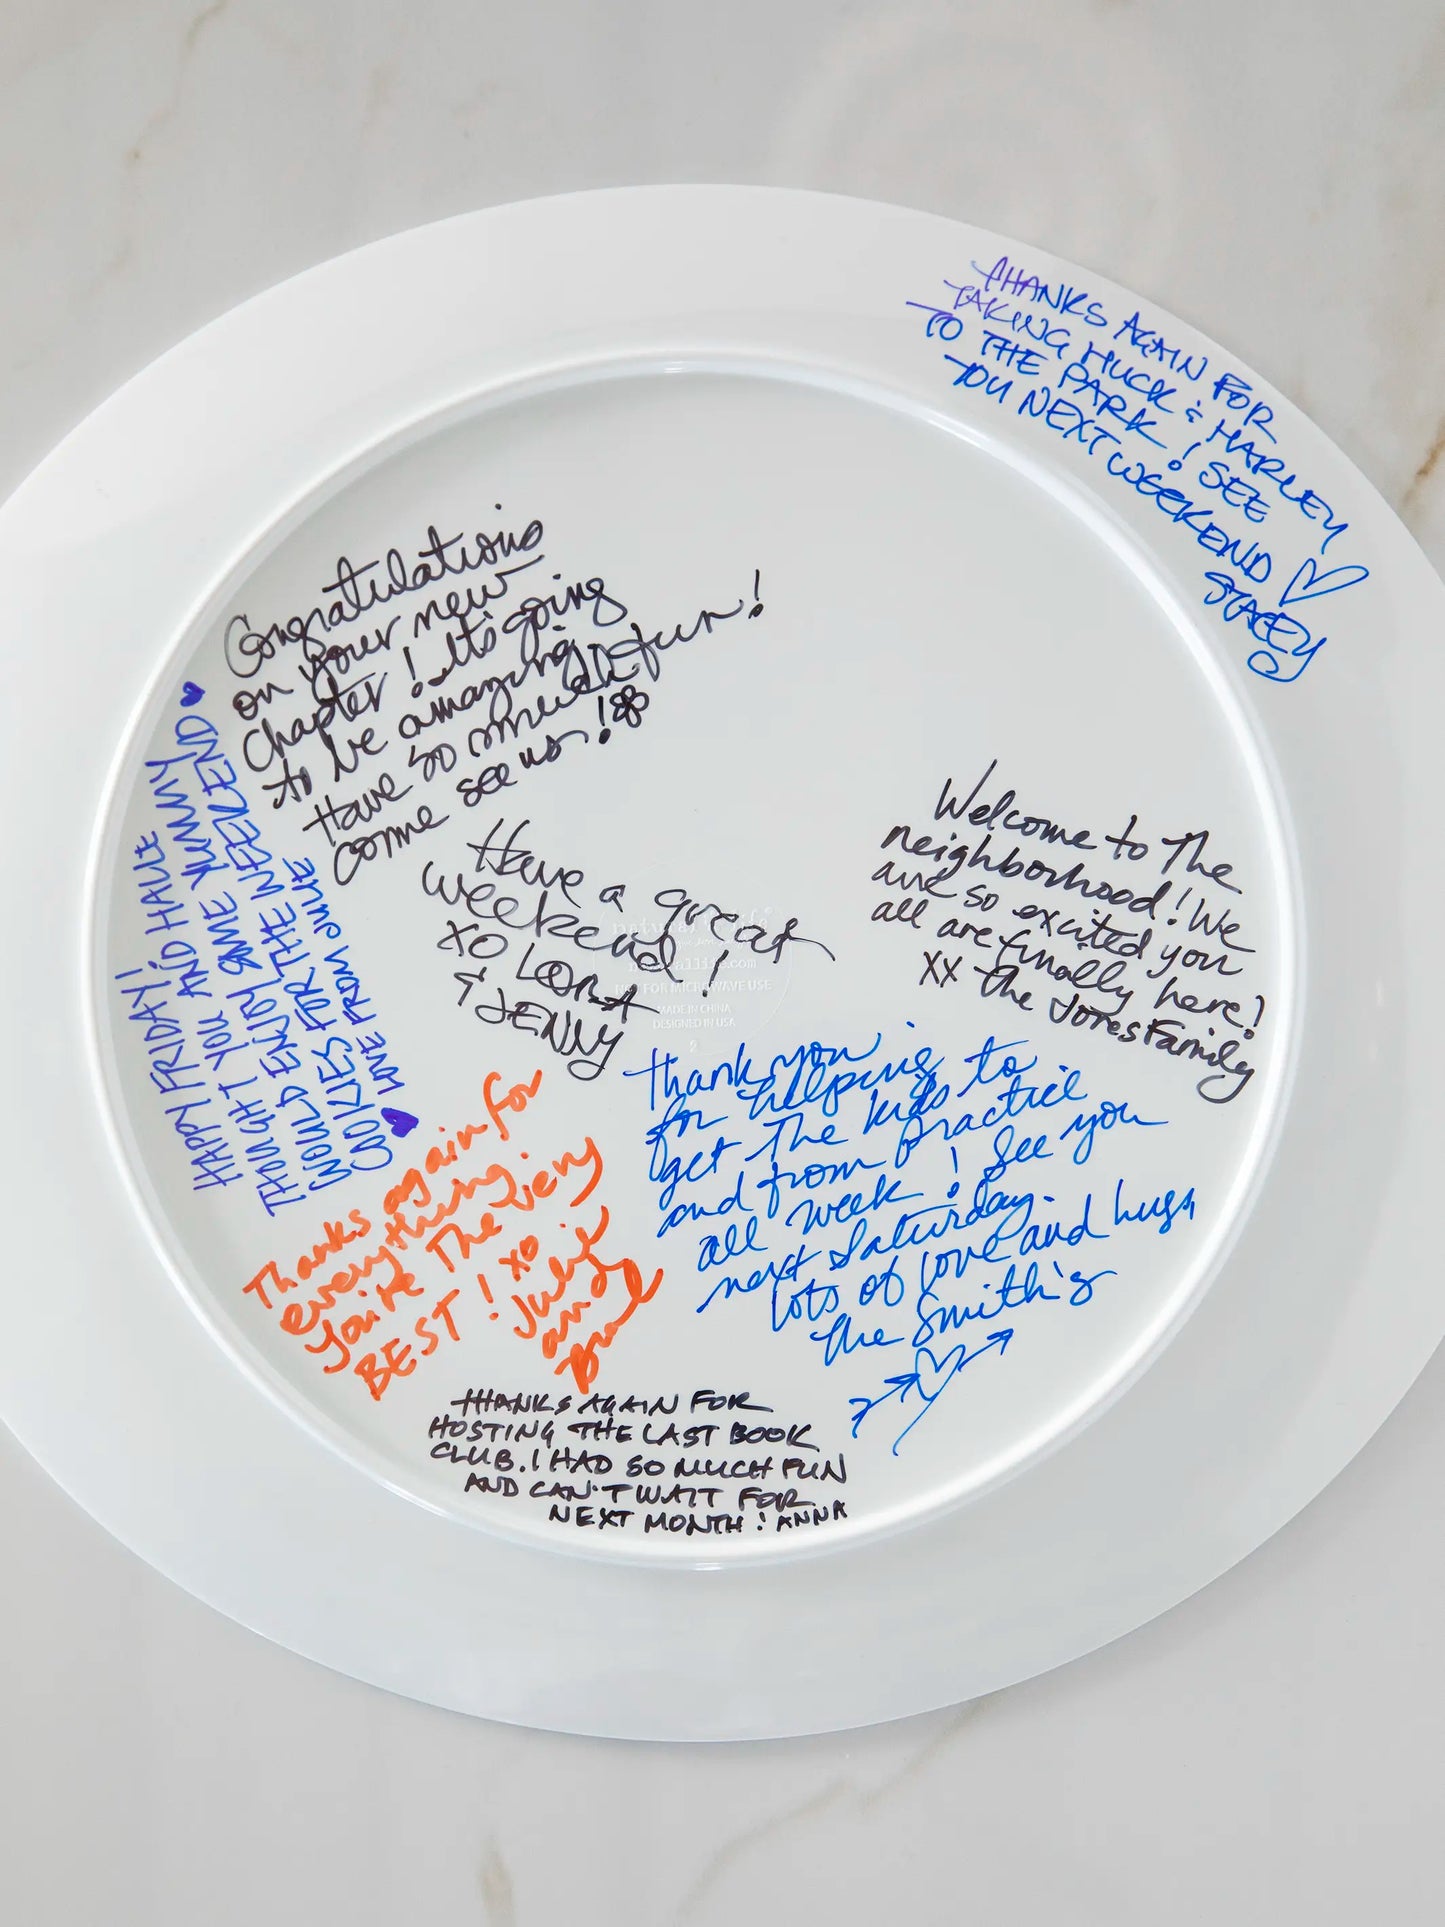 THANKS AGAIN FOR
TAKING HUCK & HARLEY
TO THE PARK! SEE
YOU NEXT WEEKEND
STACEY
Congratulations
on your new
chapter! It's going
to be amazing
Have so much fun!
come see us!
HAPPY FRIDAY!
THOUGHT YOU AND HALLE
WOULD ENJOY SOME YUMMY
COOKIES FOR THE WEEKEND
LOVE FROM JULIE
Have a great
weekend!
XO LORA
& JENNY
Welcome to The
neighborhood! We
are so excited you
all are finally here!
XX The Jones Family
natural life
naturallife.com
NOT FOR MICROWAVE USE
MADE IN CHINA
DESIGNED IN USA
2
Thank you
for helping
get the kids to
and from practice
all week! See you
next Saturday.
lots of love and hugs,
The Smith's
Thanks again for
everything.
You're The very
BEST! XO
Julie
and
THANKS AGAIN FOR
HOSTING THE LAST BOOK
CLUB. I HAD SO MUCH FUN
AND CAN'T WAIT FOR
NEXT MONTH! ANNA